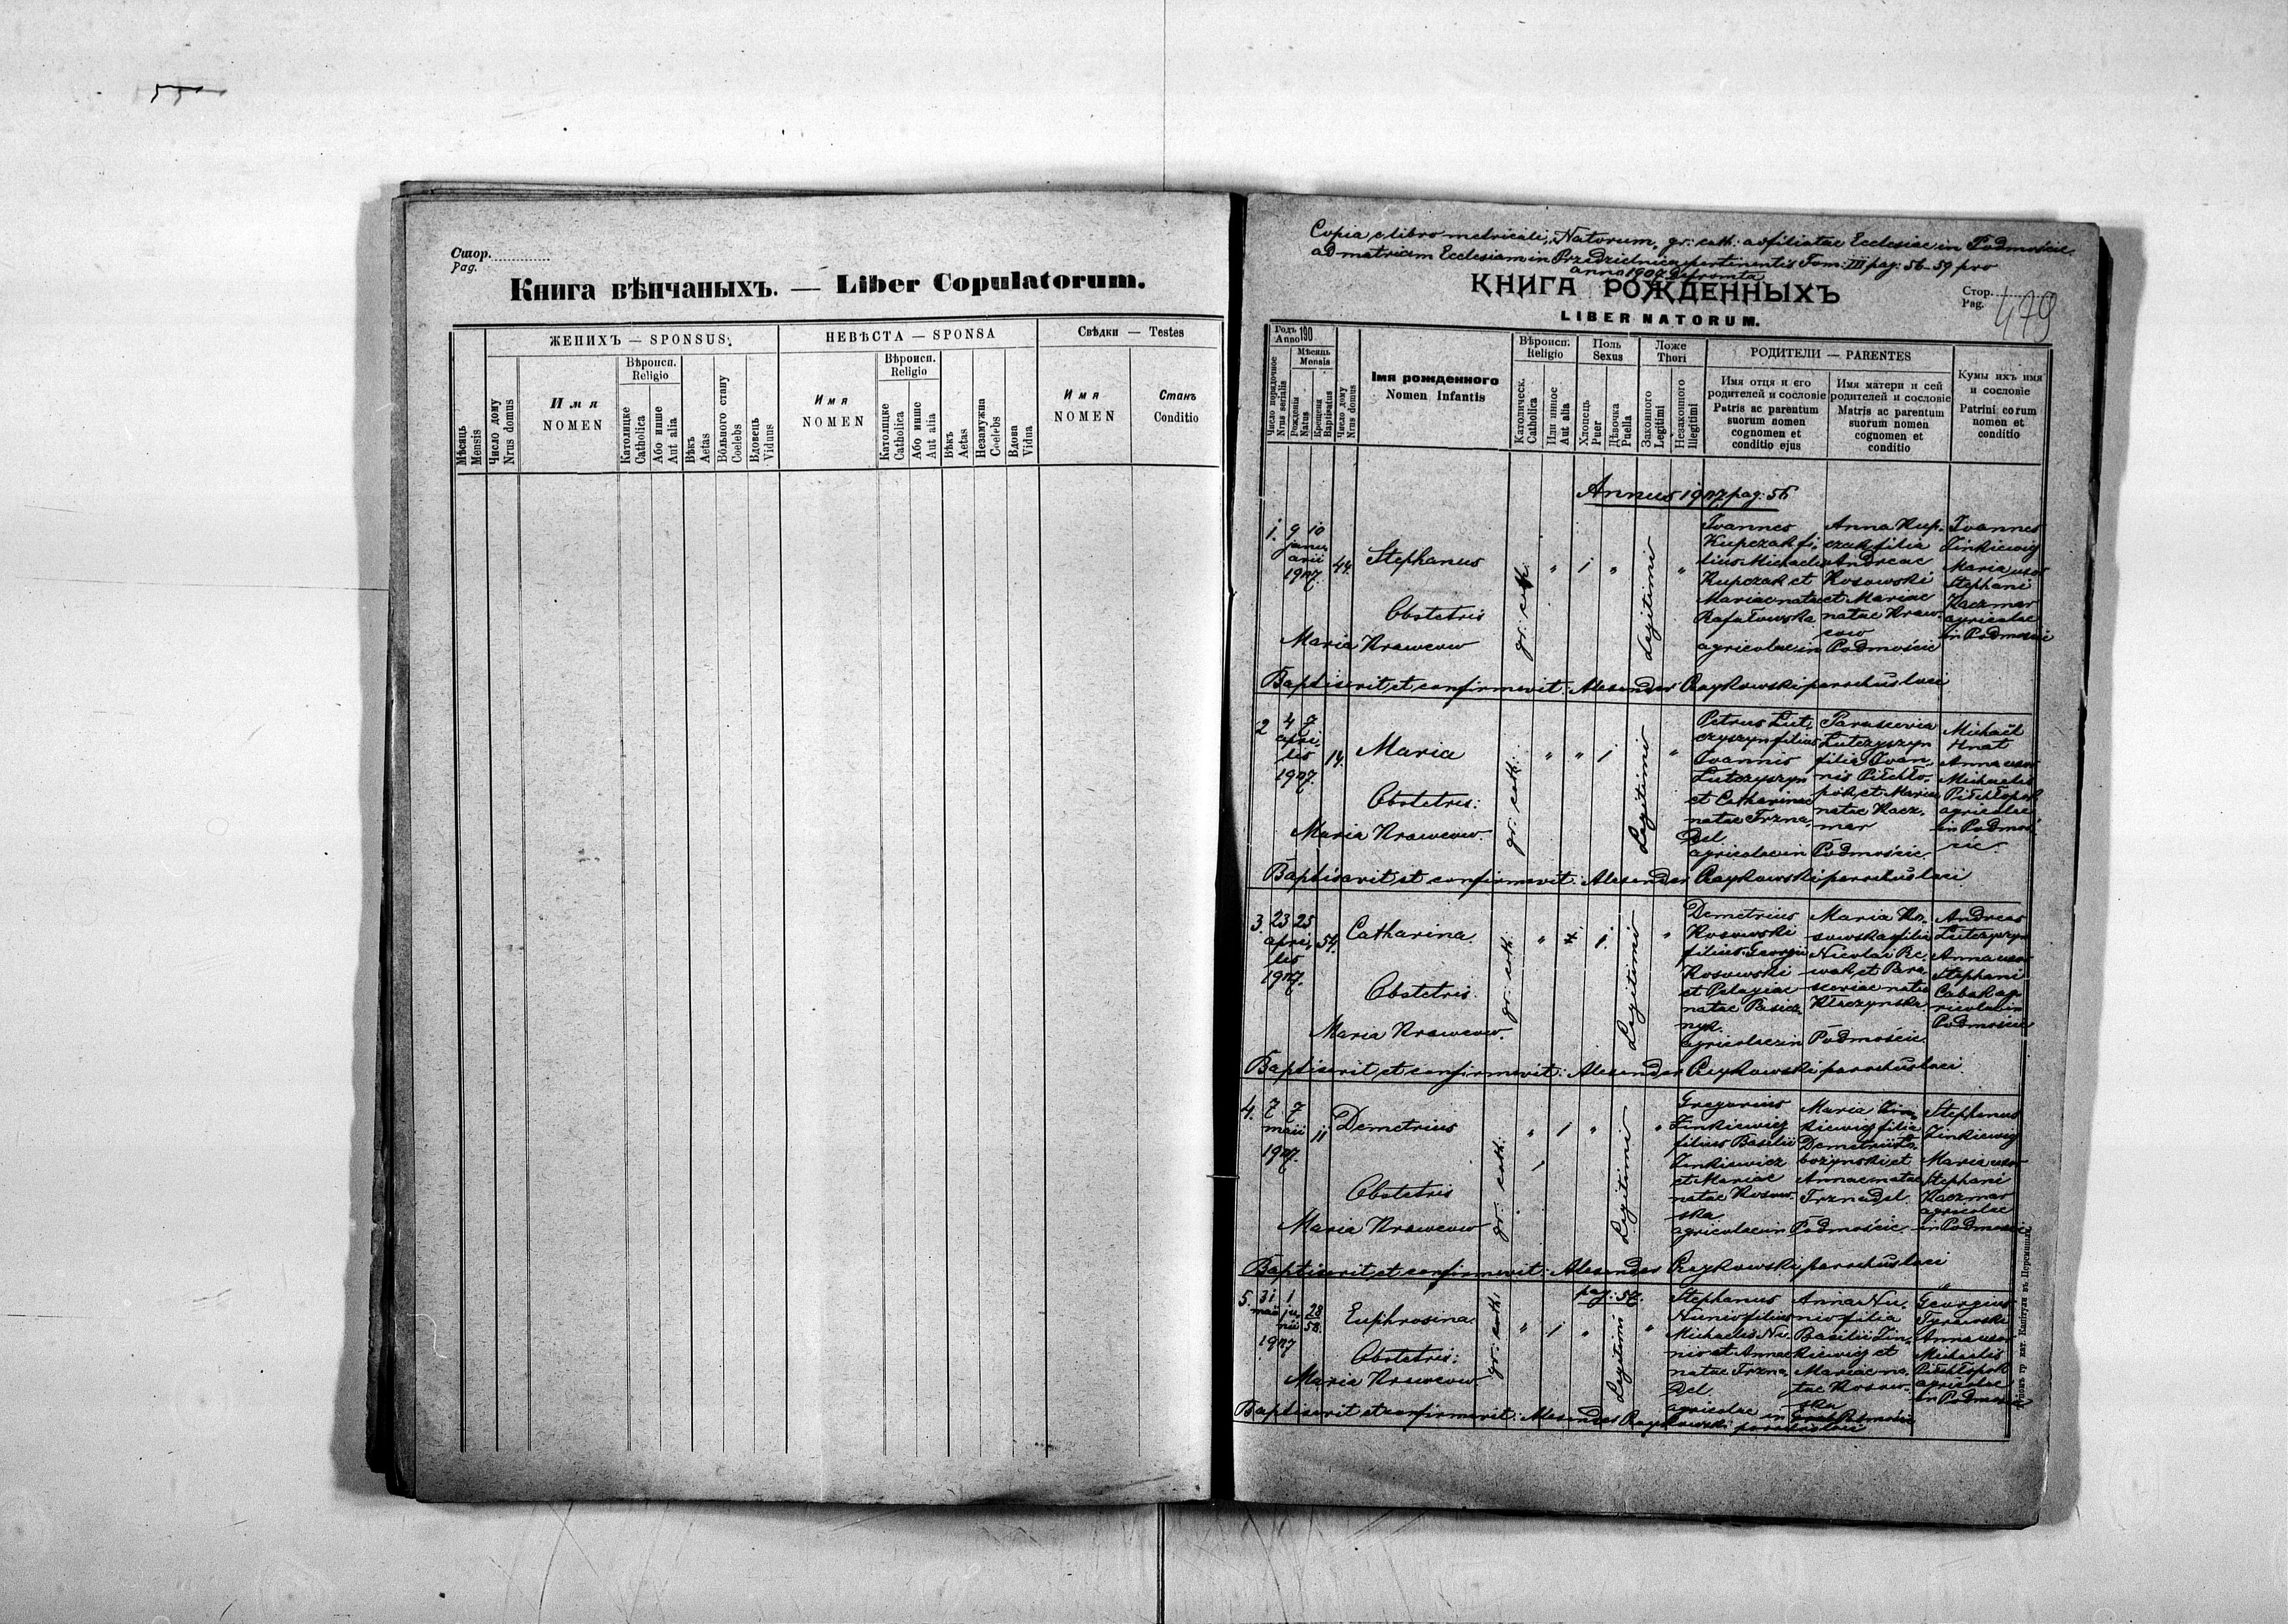 Стор.
Pag.
Книга вѣнчаныхъ. — Liber Copulatorum.
Мѣсяць Mensis
Число дому Nrus domus
ЖЕНИХЪ — SPONSUS.
Имя
NOMEN
Вѣроисп.
Religio
Католицке Catholica
Або инше Aut alia
Вѣкъ Aetas
Вольного стану Coelebs
Вдовець Viduus
НЕВѢСТА — SPONSA
Имя
NOMEN
Вѣроисп.
Religio
Католицке Catholica
Або инше Aut alia
Вѣкъ Aetas
Незамужна Coelebs
Вдова Vidua
Свѣдки — Testes
Имя
NOMEN
Станъ
Conditio
Copia e libro metricali „Natorum„ gr: cath: adfiliatae Ecclesiae in Podmoście
ad matricem Ecclesiam in Przedzielnica pertinentis Tom: III pag: 56-59 pro
anno 1907 depromta
КНИГА РОЖДЕННЫХЪ
LIBER NATORUM.
Стор.
Pag.
479
Годъ
Anno 190
Мѣсяць
Mensis
Число порядочное Nrus serialis
Рожденія Natus
Крещенія Baptisatus
Число дому Nrus domus
Імя рожденного
Nomen infantis
Вѣроисп.
Religio
Католическ. Catholica
Или инное Aut alia
Поль
Sexus
Хлопець Puer
Дѣвочка Puella
Ложе
Thori
Законного Legitimi
Незаконного Illegitimi
РОДИТЕЛИ — PARENTES
Имя отця и его
родителей и сословіе
Patris ac parentum
suorum nomen
cognomen et
conditio ejus
Имя матери и сей
родителей и сословіе
Matris ac parentum
suorum nomen
cognomen et
conditio
Кумы ихъ имя
и сословіе
Patrini eorum
nomen et
conditio
Annus 1907 pag: 56
1. 9 10
januarii
1907.
44.
Stephanus
Obstetris
Maria Krawcow
gr: cath.
" 1 "
Legitimi
"
Ioannes
Kupczak fi-
lius Michaelis
Kupczak et
Mariae natae
Rafałowska
agricolae in Podmoście
Anna Kup-
czak filia
Andreae
Kosowski
et Mariae
natae Kraw-
cow
Ioannes
Zinkiewicz
Maria uxor
Stephani
Kaczmar
agricolae
in Podmoście
Baptisavit et confirmavit: Alexander Czajkowski parochus loci
2 4 7
apri-
lis
1907.
14.
Maria
Obstetris:
Maria Krawcow.
gr: cath:
" " 1
Legitimi
"
Petrus Lut-
czyszyn filius
Ioannis
Lutczyszyn
et Catharinae
natae Trzna-
del.
agricolae in Podmoście.
Parascevia
Lutczyszyn
filia Ioan-
nis Pitchło-
pok et Mariae
natae Kacz-
mar
Michaël
Hnat
Anna uxor
Michaelis
Pitchłopok
agricolae
in Podmoś-
cie
Baptisavit et confirmavit: Alexander Czajkowski parochus loci
3. 23 25
apri-
lis
1907.
54.
Catharina.
Obstetris.
Maria Krawcow.
gr: cath:
Legitimi
"
Demetrius
Kosowski
filius Georgii
Kosowski
et Pelagiae
natae
agricolae in Podmoście.
Maria Ko-
sowska filia
Nicolai
et Para-
sceviae natae
Andreas
Lutczyszyn
Anna uxor
Stephani
Cabak ag-
ricolae in
Podmoście
Baptisavit et confirmavit: Alexander Czajkowski parochus loci
4. 7 7
maii
1907.
11
Demetrius
Obstetris
Maria Krawcow
gr: cath:
" 1 "
Legitimi
"
Gregorius
Zinkiewicz
filius Basilii
Zinkiewicz
et Mariae
natae Kosow-
ska
agricolae in Podmoście.
Maria Zin-
kiewicz filia
Demetrii
et
Annae natae
Trznadel.
Stephanus
Zinkiewicz
Maria uxor
Stephani
Kaczmar
agricolae
in Podmoście
Baptisavit et confirmavit: Alexander Czajkowski parochus loci
pag: 57.
5. 31 1
maii ju-
nii
1907
28
58.
Euphrosina.
Obstetris:
Maria Krawcow.
gr: cath:
" 1 "
Legitimi
"
Stephanus
Nunio filius
Michaelis Nu-
nio et Annae
natae Trzna-
del.
agricolae in Podmoście
Anna Nu-
nio filia
Basilii Zin-
kiewicz et
Mariae na-
tae Kosow-
ska
Georgius
Tyrawski
Anna uxor
Michaelis
Pitchłopok
agricolae
in Podmoście
Baptisavit et confirmavit: Alexander Czajkowski parochus loci
гр кат. Капітулы въ Перемышли